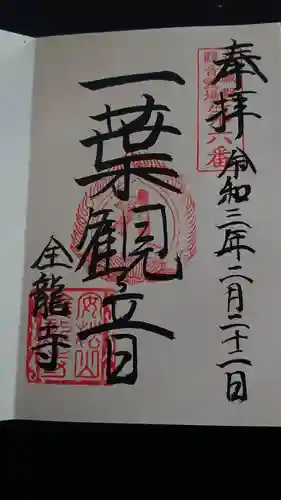 奉拝
令和三年二月二十二日
一葉観音
全龍寺
六番